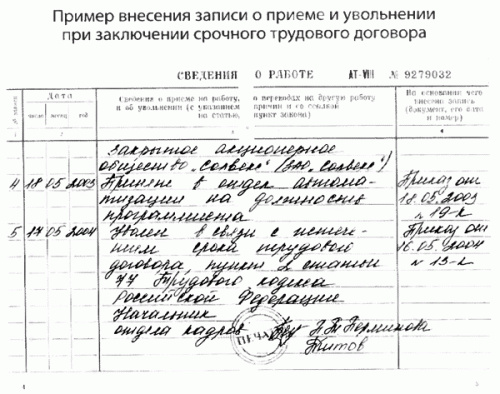 Пример внесения записи о приеме и увольнении
при заключении срочного трудового договора
СВЕДЕНИЯ О РАБОТЕ АТ-VIII № 9279032
№ записи
Дата
число месяц год
Сведения о приеме на работу, о переводах на другую работу
и об увольнении (с указанием причин и со ссылкой
на статью, пункт закона)
На основании чего
внесена запись
(документ, его дата
и номер)
1 2 3 4
Закрытое акционерное
общество „Солвекс" (ЗАО „Солвекс")
4 18 05 2003 Принят в отдел автома- Приказ от
тизации на должность 18.05.2003
программиста н 19-к
5 17 05 2004 Уволен в связи с истече- Приказ от
нием срока трудового 16.05.2004
договора, пункт 2 статьи н 13-к
77 Трудового кодекса
Российской Федерации
Начальник
отдела кадров ПЕЧАТЬ
Титов